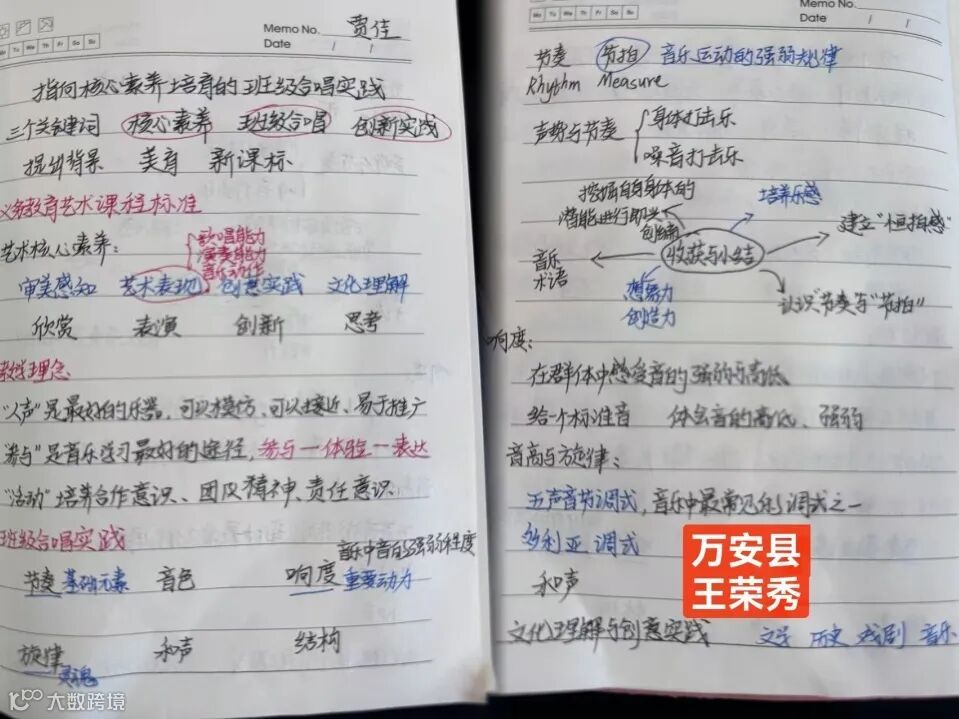 Memo No. 贾佳
Mo Tu We Th Fr Sa Su
Date / /
指向核心素养培育的班级合唱实践
三个关键词 核心素养 班级合唱 创新实践
提出背景 美育 新课标
义务教育艺术课程标准
艺术核心素养:
歌唱能力
演奏能力
音乐动作
审美感知 艺术表现 创意实践 文化理解
欣赏 表演 创新 思考
教学理念
"人声"是最好的乐器,可以模仿、可以接近、易于推广
"参与"是音乐学习最好的途径,参与—体验—表达
"活动"培养合作意识、团队精神、责任意识.
班级合唱实践
音乐中音的强弱程度
节奏 基础元素 音色 响度 重要动力
旋律 和声 结构
灵魂
Memo No.
Mo Tu We Th Fr Sa Su
Date / /
节奏 节拍 音乐运动的强弱规律
Rhythm Measure
声势与节奏
身体打击乐
噪音打击乐
挖掘自身身体的
潜能进行即兴
创编
培养乐感
建立"恒拍感"
收获与小结
音乐
术语
想象力
创造力
认识"节奏"与"节拍"
响度:
在群体中感受音的强弱与高低
给一个标准音 体会音的高低、强弱
音高与旋律:
五声音节调式,音乐中最常见的调式之一
多利亚调式
和声
文化理解与创意实践 文学 历史 戏剧 音乐
万安县
王荣秀
大数跨境